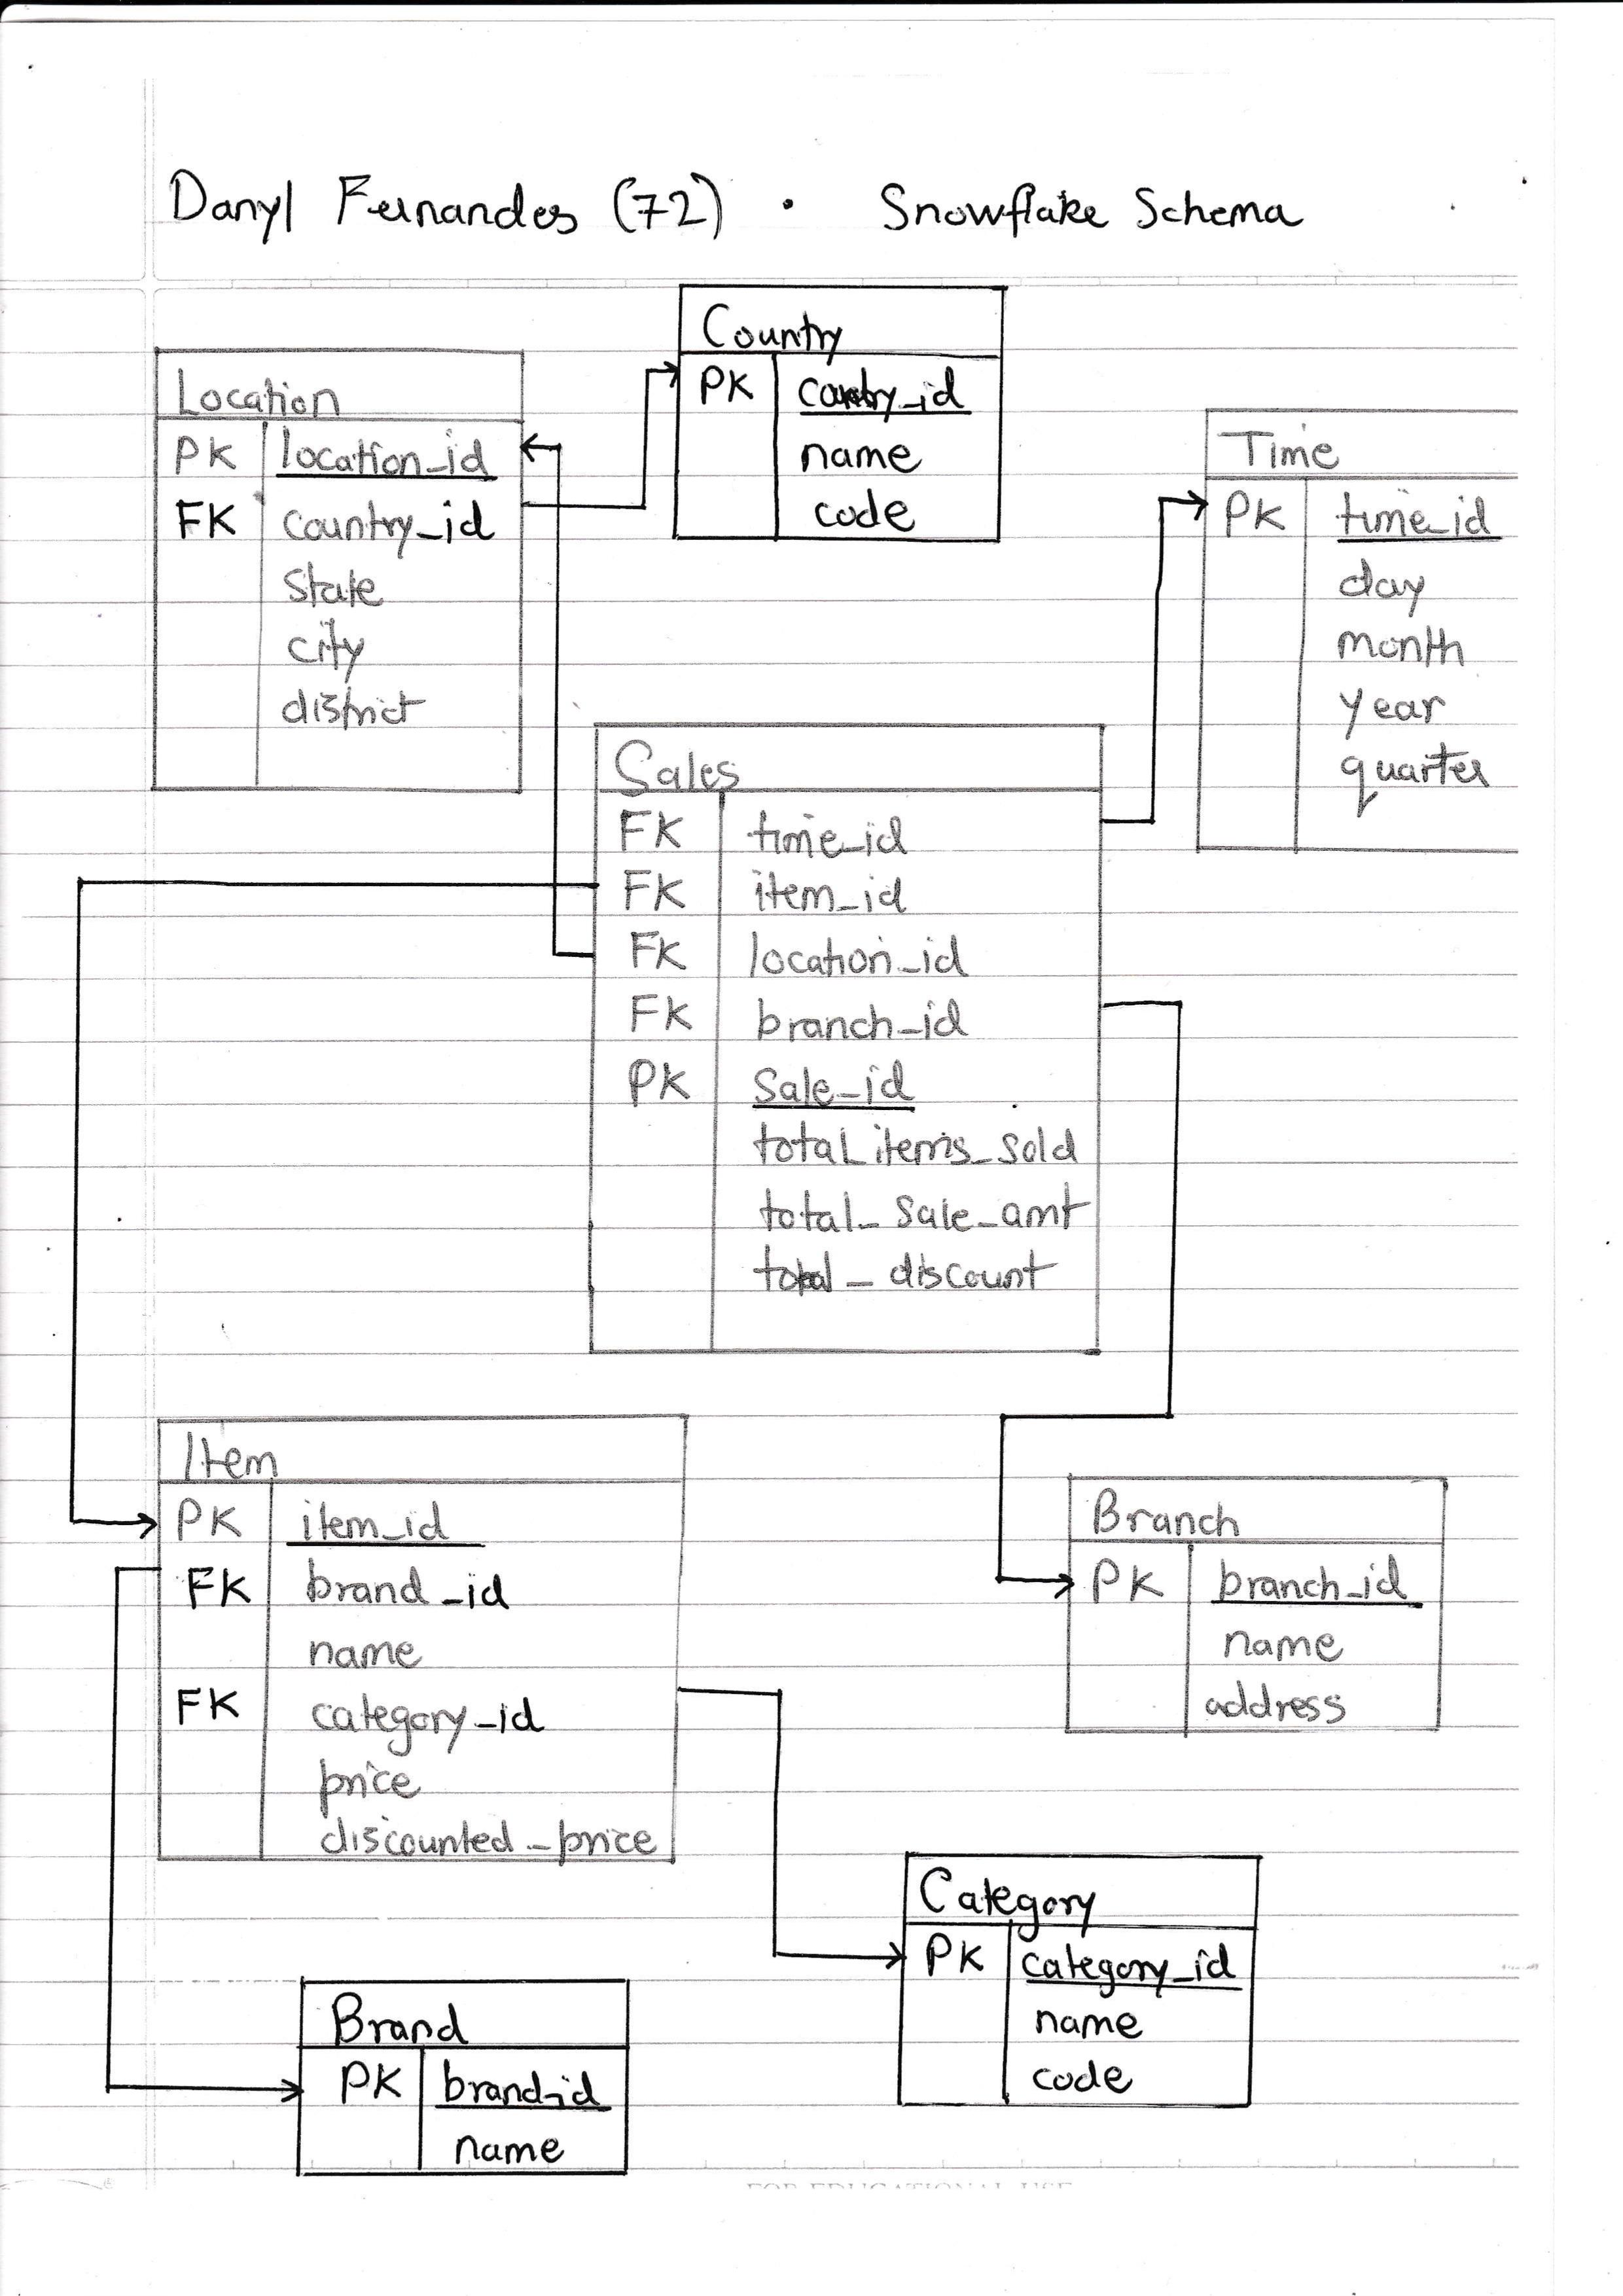 Danyl Fernandes (72) . Snowflake Schema
Country
PK country_id
name
code
Location
PK location_id
FK country_id
state
city
district
Time
PK time_id
day
month
year
quarter
Sales
FK time_id
FK item_id
FK location_id
FK branch_id
PK Sale_id
total_items_sold
total_sale_amt
total_discount
Item
PK item_id
FK brand_id
name
FK category_id
price
discounted_price
Branch
PK branch_id
name
address
Category
PK category_id
name
code
Brand
PK brand_id
name
FOR EDUCATIONAL USE